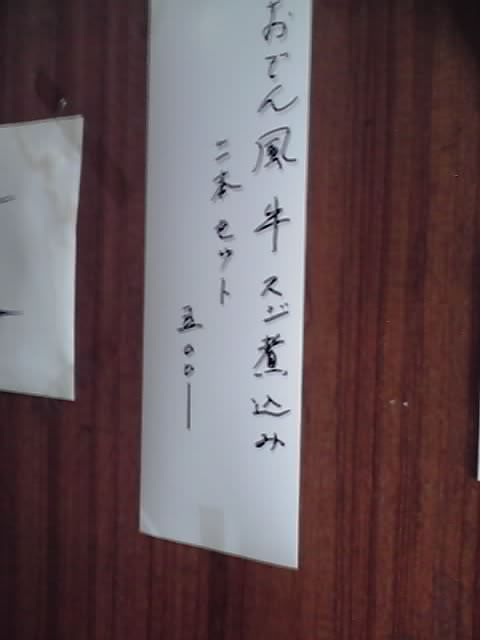 おでん風牛スジ煮込み
二本セット
五〇〇―